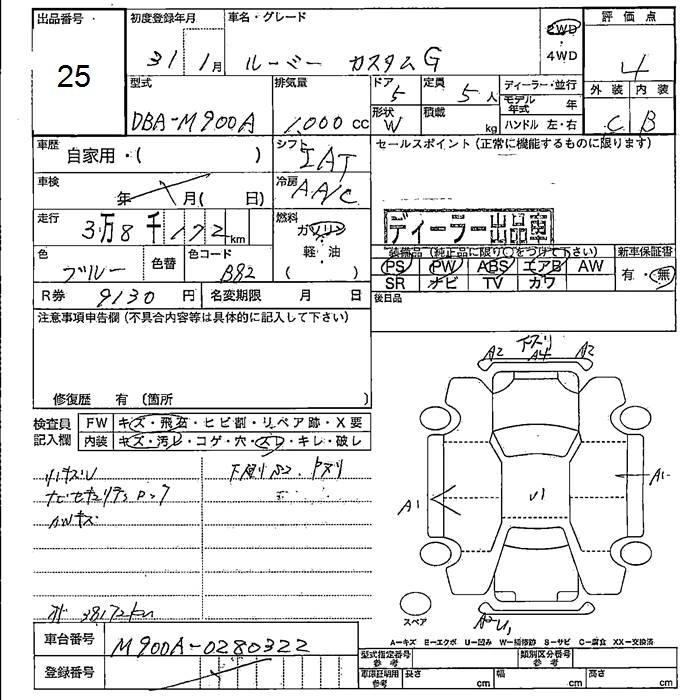 出品番号 25
初度登録年月 31 1月
車名・グレード ルーミー カスタムG
2WD・4WD
評価点 4
外装 C 内装 B
型式 DBA-M900A
排気量 1,000cc
ドア 5
形状 W
定員 5人
積載 kg
ディーラー・並行
モデル年式 年
ハンドル 左・右
車歴 自家用・( )
シフト IAT
セールスポイント (正常に機能するものに限ります)
ディーラー出品車
車検 年 月( 日)
冷房 AA/C
走行 3万8千172km
燃料 ガソリン・軽油( )
色 ブルー 色替 色コード B82
R券 9130円 名変期限 月 日
装備品 (純正品に限り○をつけて下さい) 新車保証書
PS PW ABS エアB AW 有・無
SR ナビ TV カワ
後日品
注意事項申告欄 (不具合内容等は具体的に記入して下さい)
修復歴 有 (箇所 )
検査員記入欄
FW キズ・飛石・ヒビ割・リペア跡・X要
内装 キズ・汚レ・コゲ・穴・スレ・キレ・破レ
小キズU
AWキズ
38172km
下スリ
A2 A4 A2
A1
U1
A1
A2U1
スペア
A-キズ E-エクボ U-凹み W-補修跡 S-サビ C-腐食 XX-交換済
車台番号 M900A-0280322
登録番号
型式指定番号 参考 類別区分番号 参考
車庫証明用 参考 長さ cm 幅 cm 高さ cm